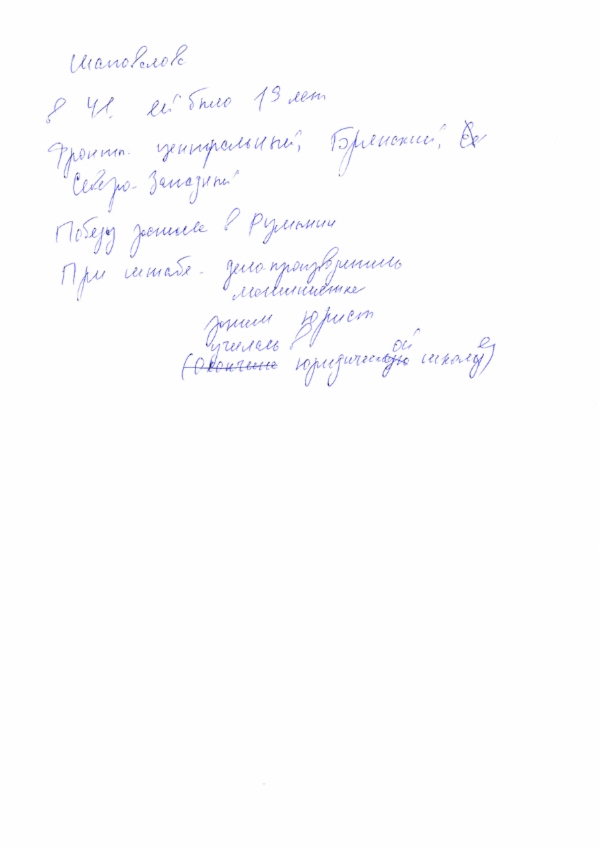 Шаповалова
в 41. ей было 19 лет
Фронты. центральный, Брянский, Се
Северо-Западный
Победу застала в Румынии
При штабе - делопроизводитель
машинистка
затем юрист
училась в ой е
(Окончила юридическую школу)